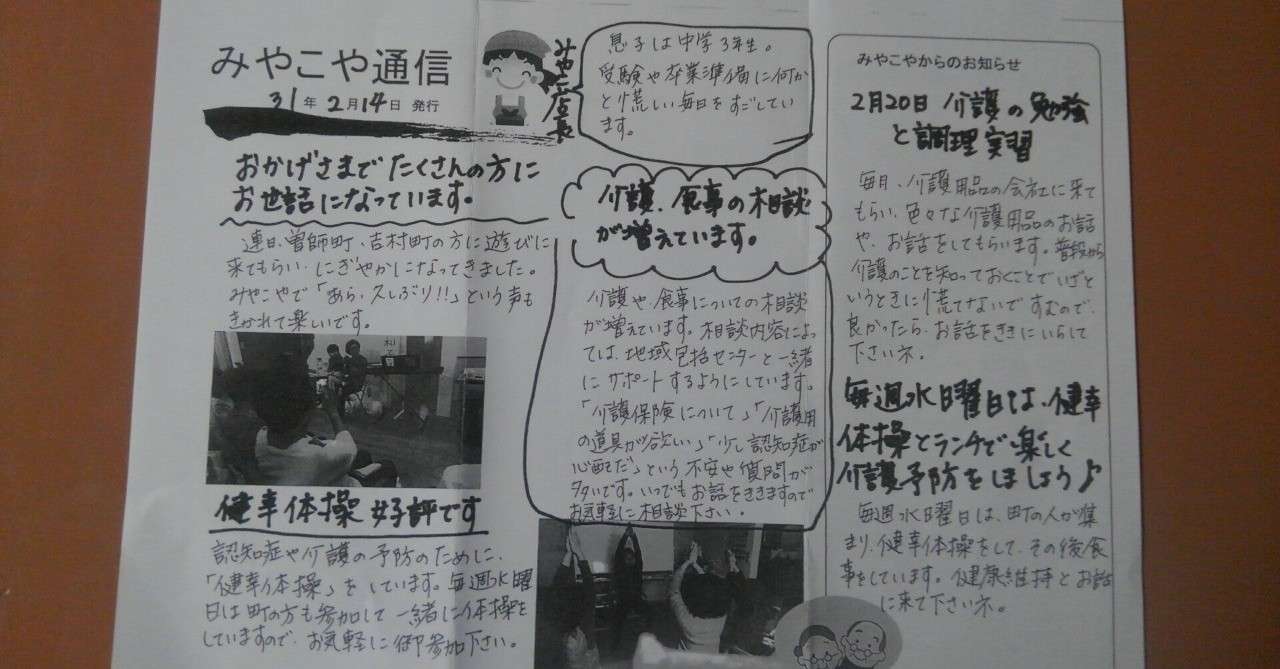 みやこや通信
31年2月14日 発行
みやこや店長
息子は中学3年生。
受験や卒業準備に何か
と慌しい毎日をすごしてい
ます。
おかげさまでたくさんの方に
お世話になっています。
連日、曽師町、吉村町の方に遊びに
来てもらい、にぎやかになってきました。
みやこやで「あら、久しぶり!!」という声も
きかれて楽しいです。
健幸体操 好評です
認知症や介護の予防のために、
「健幸体操」をしています。毎週水曜
日は町の方も参加して一緒に体操を
していますので、お気軽に御参加下さい。
介護、食事の相談
が増えています。
介護や、食事についての相談
が増えています。相談内容によっ
ては、地域包括センターと一緒
にサポートするようにしています。
「介護保険について」「介護用
の道具が欲しい」「少し認知症が
心配だ」という不安や質問が
多いです。いつでもお話をききますので
お気軽に相談下さい。
みやこやからのお知らせ
2月20日 介護の勉強
と調理実習
毎月、介護用品の会社に来て
もらい、色々な介護用品のお話
や、お話をしてもらいます。普段から
介護のことを知っておくことでいざと
いうときに慌てないですむので、
良かったら、お話をききにいらして
下さいネ。
毎週水曜日は、健幸
体操とランチで楽しく
介護予防をしましょう♪
毎週水曜日は、町の人が集
まり、健幸体操をして、その後食
事をしています。健康維持とお話
に来て下さいネ。